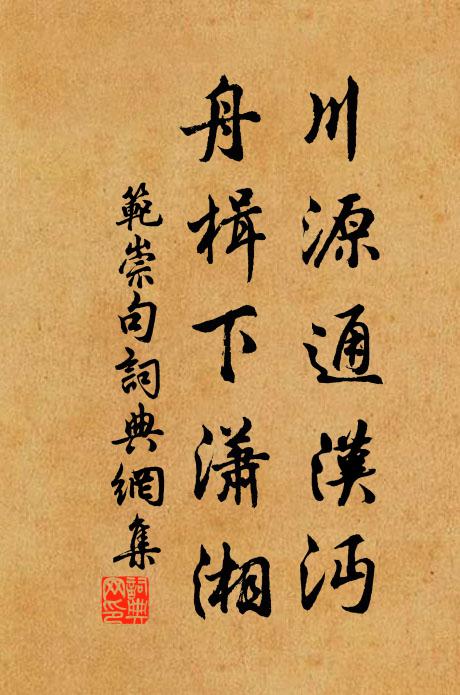 川源通漢沔
舟楫下瀟湘
範崇句詞典網集
詞典網印